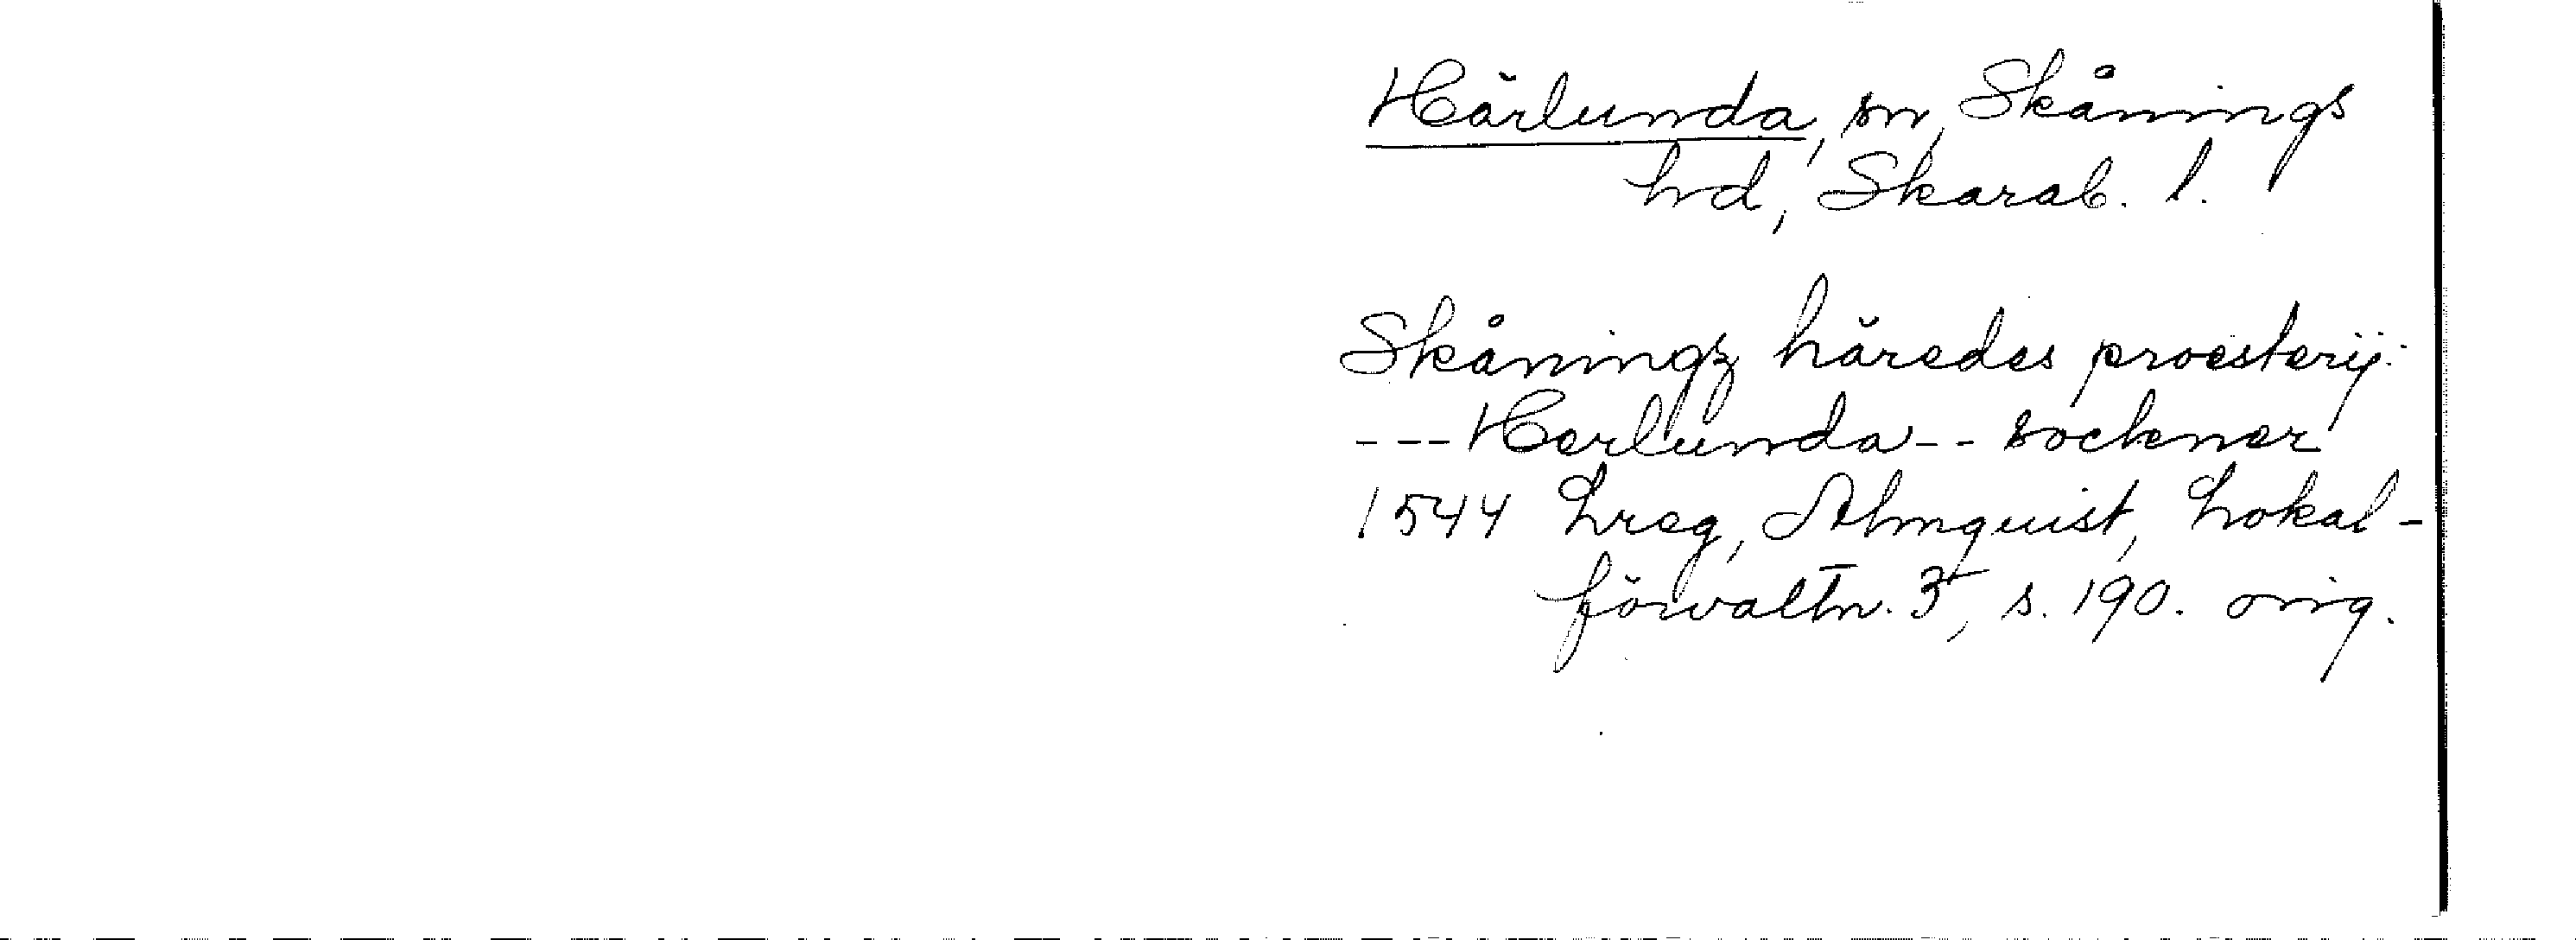 Härlunda, sn, Skånings
hd, Skarab. l.
Skåningz häredes proesterij:
--- Herlunda -- sockner
1544 Lreg, Almquist, Lokal-
förvaltn. 3, s. 190. orig.